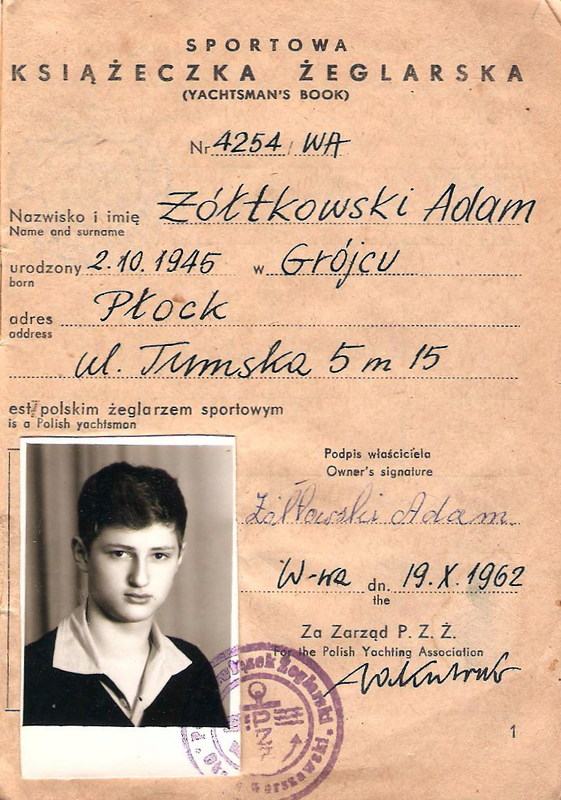 SPORTOWA
KSIĄŻECZKA ŻEGLARSKA
(YACHTSMAN'S BOOK)
Nr 4254/WA
Nazwisko i imię Żółtkowski Adam
Name and surname
urodzony 2.10.1945 w Grójcu
born
adres Płock
address
ul. Tumska 5 m 15
est polskim żeglarzem sportowym
is a Polish yachtsman
Podpis właściciela
Owner's signature
Żółtkowski Adam
W-wa dn. 19.X.1962
the
Za Zarząd P. Z. Ż.
For the Polish Yachting Association
Żeglarski
PZŻ
1